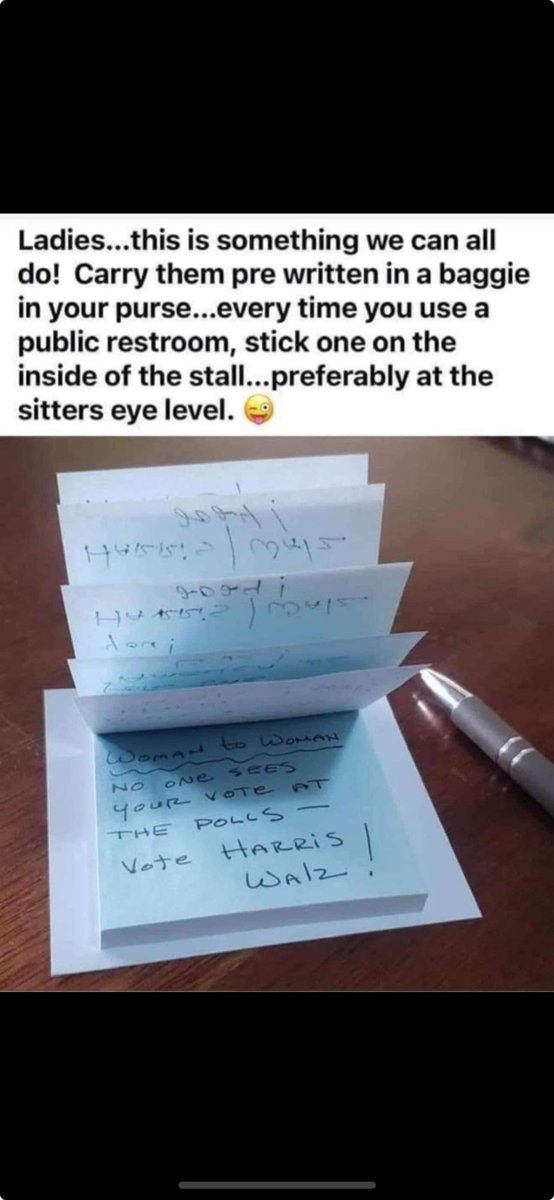 Ladies...this is something we can all
do! Carry them pre written in a baggie
in your purse...every time you use a
public restroom, stick one on the
inside of the stall...preferably at the
sitters eye level. 😜
WOMAN to WOMAN
NO ONE SEES
YOUR VOTE AT
THE POLLS —
Vote HARRIS
WALZ!